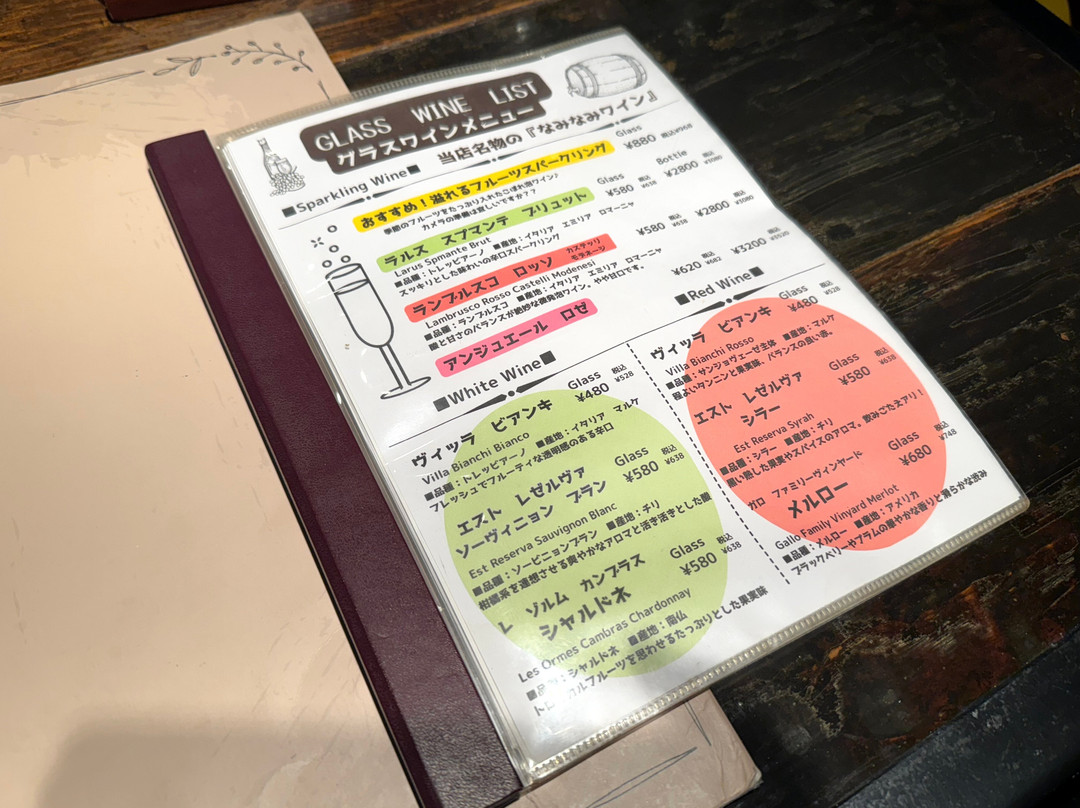 GLASS WINE LIST
グラスワインメニュー
当店名物の『なみなみワイン』
■Sparkling Wine■
おすすめ！溢れるフルーツスパークリング
Glass
¥880 税込¥968
季節のフルーツをたっぷり入れたこぼれ泡ワイン♪
カメラの準備は宜しいですか？？
ラルス スプマンテ ブリュット
Glass
¥580 税込¥638
Bottle
¥2800 税込¥3080
Larus Spmante Brut
■品種：トレッビアーノ ■産地：イタリア エミリア ロマーニャ
スッキリとした味わいの辛口スパークリング
ランブルスコ ロッソ カステッリ モデネージ
¥580 税込¥638
¥2800 税込¥3080
Lambrusco Rosso Castelli Modenesi
■品種：ランブルスコ ■産地：イタリア エミリア ロマーニャ
酸と甘さのバランスが絶妙な微発泡ワイン。やや甘口です。
アンジュエール ロゼ
¥620 税込¥682
¥3200 税込¥3520
■White Wine■
Glass
ヴィッラ ビアンキ
¥480 税込¥528
Villa Bianchi Bianco
■品種：トレッビアーノ ■産地：イタリア マルケ
フレッシュでフルーティな透明感のある辛口
エスト レゼルヴァ
ソーヴィニョン ブラン
Glass
¥580 税込¥638
Est Reserva Sauvignon Blanc
■品種：ソービニョンブラン ■産地：チリ
柑橘系を連想させる爽やかなアロマと活き活きとした酸
レ ゾルム カンブラス
シャルドネ
Glass
¥580 税込¥638
Les Ormes Cambras Chardonnay
■品種：シャルドネ ■産地：南仏
トロピカルフルーツを思わせるたっぷりとした果実味
■Red Wine■
Glass
ヴィッラ ビアンキ
¥480 税込¥528
Villa Bianchi Rosso
■品種：サンジョヴェーゼ主体 ■産地：マルケ
程よいタンニンと果実味。バランスの良い赤。
エスト レゼルヴァ
シラー
Glass
¥580 税込¥638
Est Reserva Syrah
■品種：シラー ■産地：チリ
黒い熟した果実やスパイスのアロマ。飲みごたえアリ！
ガロ ファミリーヴィンヤード
メルロー
Glass
¥680 税込¥748
Gallo Family Vinyard Merlot
■品種：メルロー ■産地：アメリカ
ブラックベリーやプラムの華やかな香りと滑らかな渋み